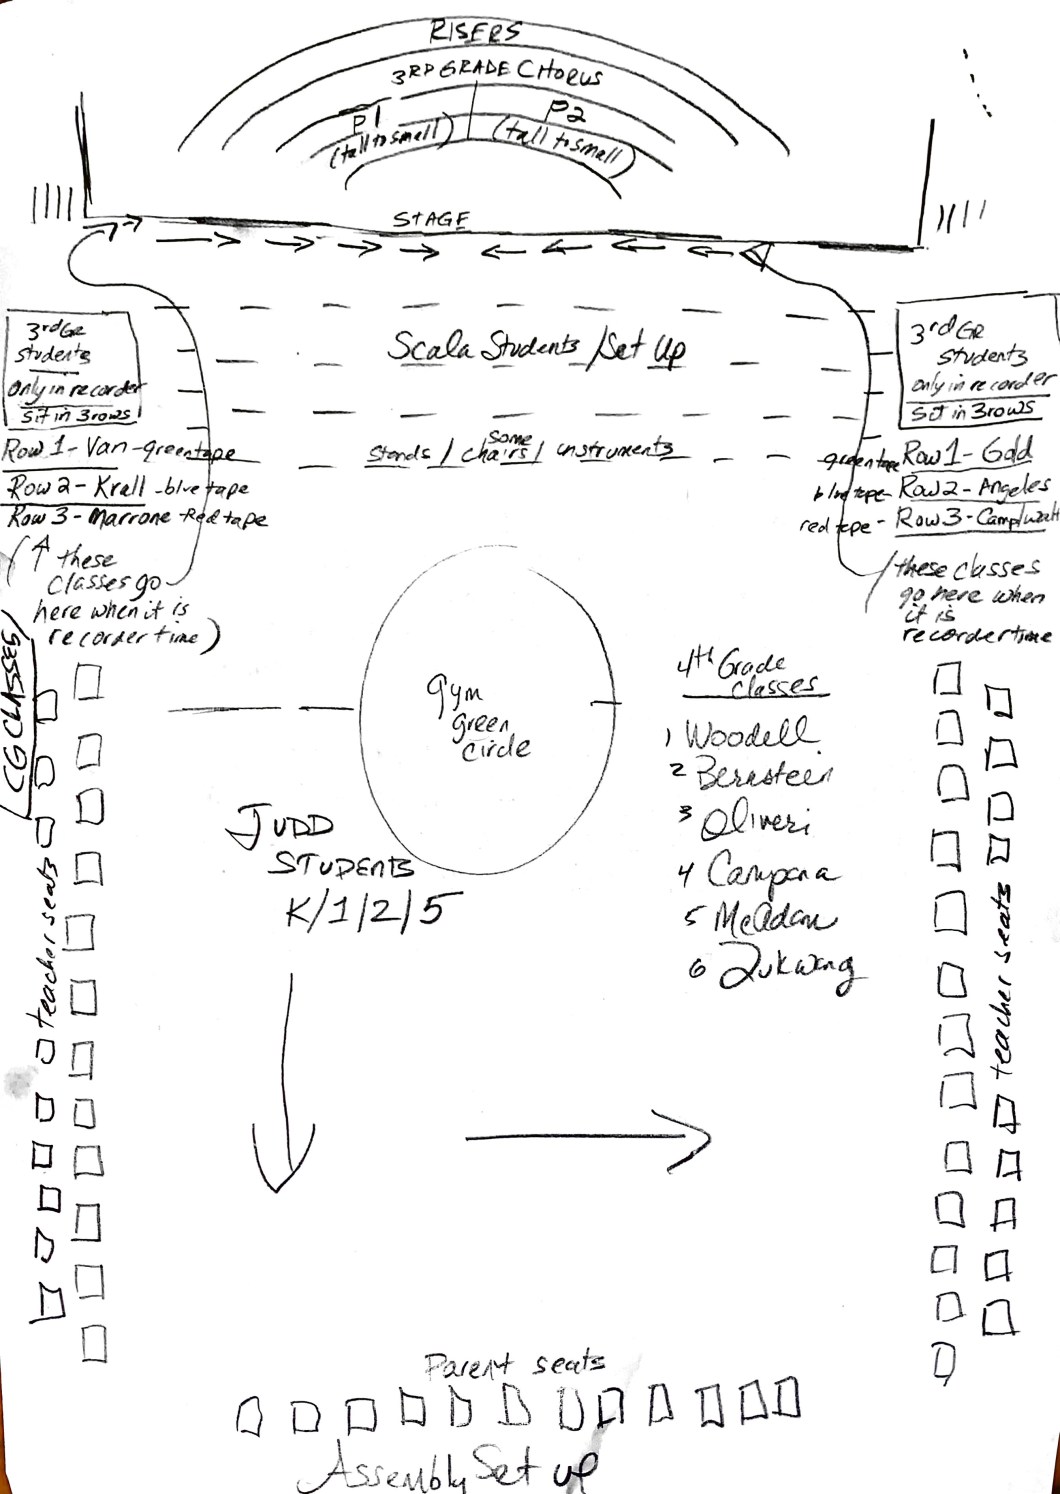 RISERS
3RD GRADE CHORUS
P1
(tall to small)
P2
(tall to small)
STAGE
3rd GR
students
only in recorder
sit in 3 rows
Row 1 - Van - green tape
Row 2 - Krall - blue tape
Row 3 - Marrone - Red tape
(↑ these
classes go
here when it is
recorder time)
Scala Students / Set Up
Stands / some chairs / instruments
3rd GR
students
only in recorder
sit in 3 rows
green tape Row 1 - Gold
blue tape - Row 2 - Angeles
red tape - Row 3 -
these classes
go here when
it is
recorder time
CG CLASSES
teacher seats
gym
green
circle
JUDD
STUDENTS
K/1/2/5
4th Grade
classes
1 Woodell
2 Bernstein
3 Oliveri
4 Campana
5 McAdam
6
teacher seats
Parent seats
Assembly Set up